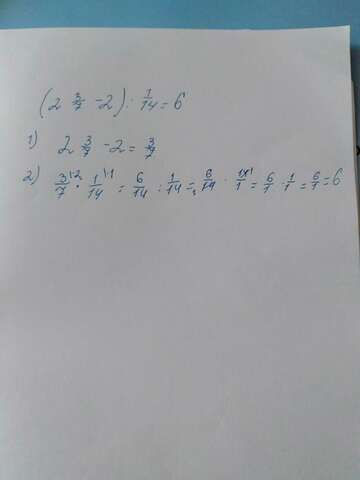 (2 3/7 - 2) : 1/14 = 6
1) 2 3/7 - 2 = 3/7
2) 3\2/7 : 1\1/14 = 6/14 : 1/14 = 6/14 · 14\1/1 = 6/1 · 1/1 = 6/1 = 6